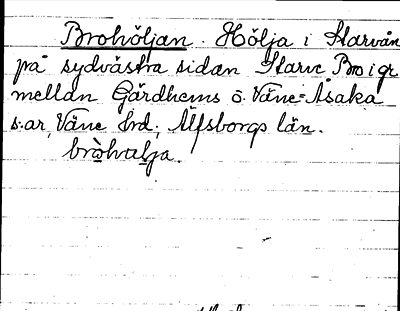 Brohöljan. Hölja i Starvån
på sydvästra sidan Starve Bro i gr.
mellan Gärdhems o. Väne-Åsaka
s:ar, Väne hrd, Älfsborgs län.